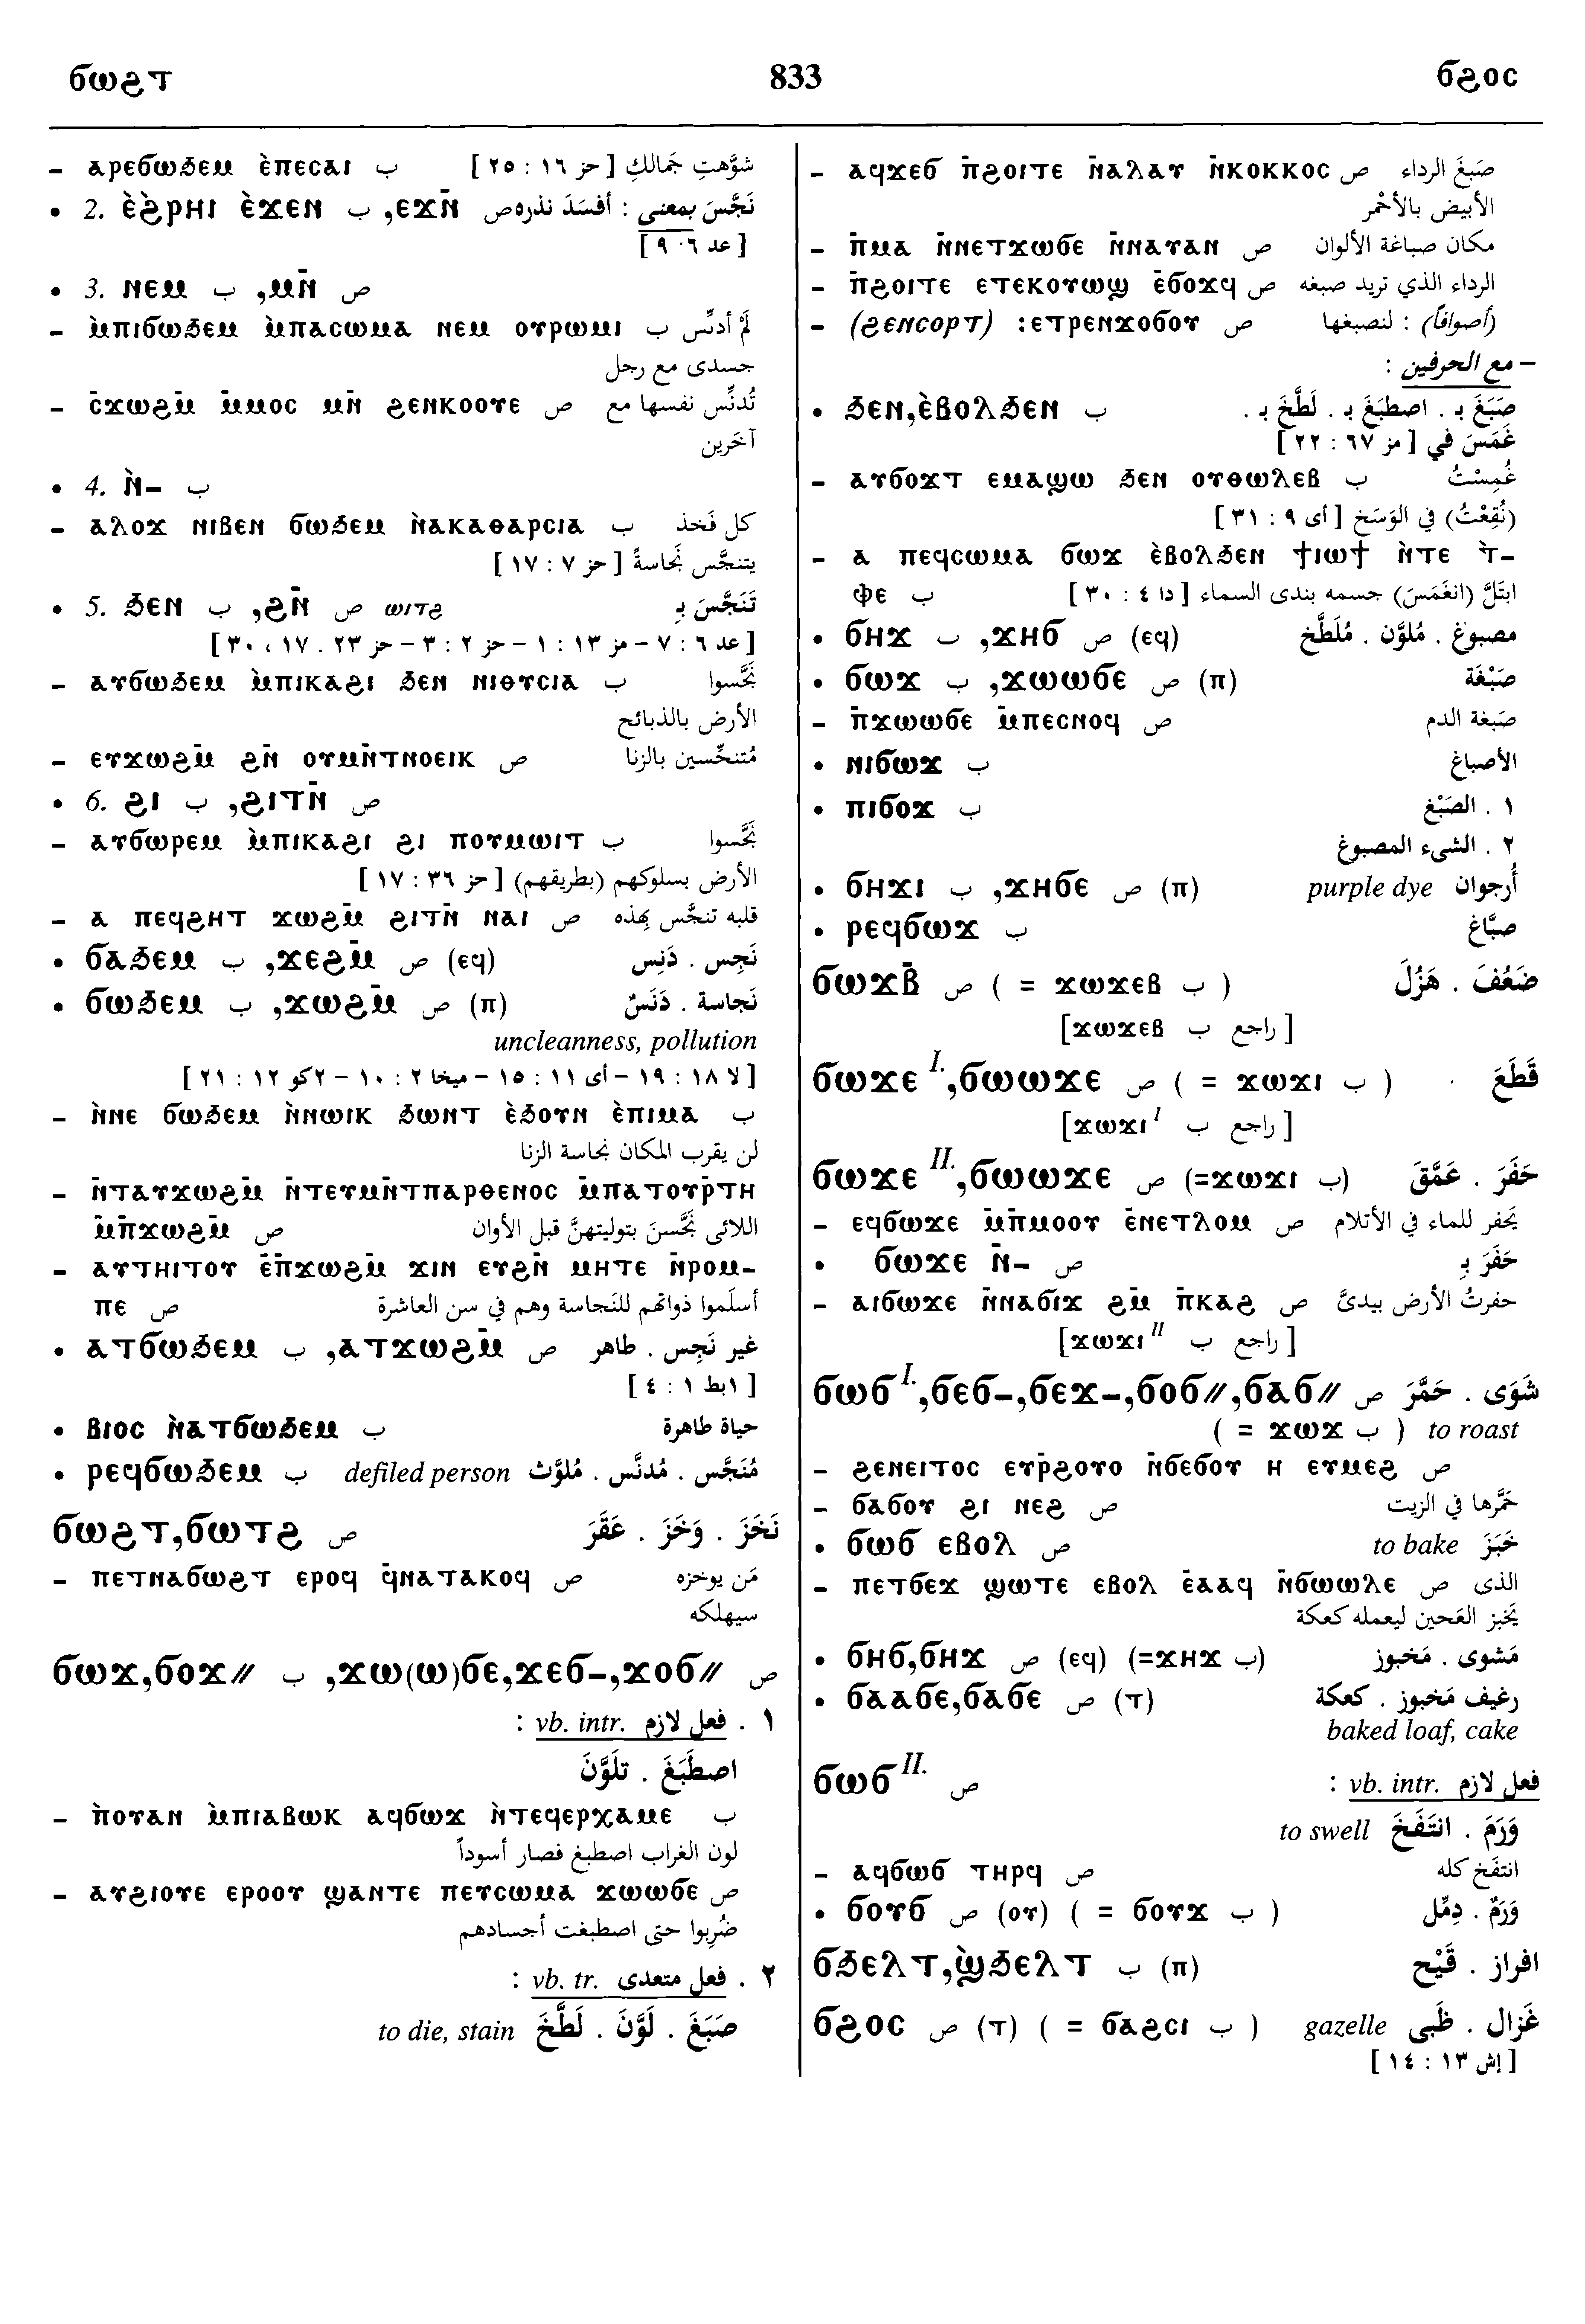 ϭⲱϩⲧ 833 ϭϩⲟⲥ
– ⲁⲣⲉϭⲱϧⲉⲙ ⲉ̀ⲡⲉⲥⲁⲓ ب شوَّهتِ جَمالكِ [ حز ١٦ : ٢٥ ]
• 2. ⲉ̀ϩ̀ⲣⲏⲓ ⲉ̀ϫⲉⲛ ب ,ⲉϫⲛ̄ ص نَجَّسَ بمعنى : أفسَدَ نذره
[ عد ٦ ٩ ]
• 3. ⲛⲉⲙ ب ,ⲙⲛ̄ ص
– ⲙ̀ⲡⲓϭⲱϧⲉⲙ ⲙ̀ⲡⲁⲥⲱⲙⲁ ⲛⲉⲙ ⲟⲩⲣⲱⲙⲓ ب لَمْ أدنِّس
جسدى مع رجل
– ⲥ̄ϫⲱϩⲙ̄ ⲙ̄ⲙⲟⲥ ⲙⲛ̄ ϩⲉⲛⲕⲟⲟⲩⲉ ص تُدنِّس نفسها مع
آخَرين
• 4. ⲛ̀– ب
– ⲁⲗⲟϫ ⲛⲓⲃⲉⲛ ϭⲱϧⲉⲙ ⲛ̀ⲁⲕⲁⲑⲁⲣⲥⲓⲁ ب كل فَخذ
يتنجَّس نَجاسةً [ حز ٧ : ١٧ ]
• 5. ϧⲉⲛ ب ,ϩⲛ̄ ص ⲱⲓⲧϩ تَنَجَّسَ بِـ
[ عد ٦ : ٧ – مز ١٣ : ١ – حز ٢ : ٣ – حز ٢٣ . ١٧ ، ٣٠ ]
– ⲁⲩϭⲱϧⲉⲙ ⲙ̀ⲡⲓⲕⲁϩⲓ ϧⲉⲛ ⲛⲓⲑⲩⲥⲓⲁ ب نَجَّسوا
الأرض بالذبائح
– ⲉⲩϫⲱϩⲙ̄ ϩⲛ̄ ⲟⲩⲙⲛ̄ⲧⲛⲟⲉⲓⲕ ص مُتنجِّسين بالزنا
• 6. ϩⲓ ب ,ϩⲓⲧⲛ̄ ص
– ⲁⲩϭⲱⲣⲉⲙ ⲙ̀ⲡⲓⲕⲁϩⲓ ϩⲓ ⲡⲟⲩⲙⲱⲓⲧ ب نَجَّسوا
الأرض بسلوكهم (بطريقهم) [ حز ٣٦ : ١٧ ]
– ⲁ ⲡⲉϥϩⲏⲧ ϫⲱϩⲙ̄ ϩⲓⲧⲛ̄ ⲛⲁⲓ ص قلبه تنجَّس بهذه
• ϭⲁϧⲉⲙ ب ,ϫⲉϩⲙ̄ ص (ⲉϥ) نَجِس . دَنِس
• ϭⲱϧⲉⲙ ب ,ϫⲱϩⲙ̄ ص (ⲡ) نَجاسة . دَنَسٌ
uncleanness, pollution
[ لا ١٨ : ١٩ – أى ١١ : ١٥ – ميخا ٢ : ١٠ – ٢كو ١٢ : ٢١ ]
– ⲛ̀ⲛⲉ ϭⲱϧⲉⲙ ⲛ̀ⲛⲱⲓⲕ ϧⲱⲛⲧ ⲉ̀ϧⲟⲩⲛ ⲉ̀ⲡⲓⲙⲁ ب
لن يقرب المكان نجاسة الزنا
– ⲛ̄ⲧⲁⲩϫⲱϩⲙ̄ ⲛ̄ⲧⲉⲩⲙⲛ̄ⲧⲡⲁⲣⲑⲉⲛⲟⲥ ⲙ̄ⲡⲁⲧⲟⲩⲣ̄ⲧⲏ
ⲙ̄ⲡ̄ϫⲱϩⲙ̄ ص اللائى نَجَّسنَ بتوليتهنَّ قبل الأوان
– ⲁⲩⲧⲏⲓⲧⲟⲩ ⲉ̄ⲡ̄ϫⲱϩⲙ̄ ϫⲓⲛ ⲉⲩϩⲛ̄ ⲙⲏⲧⲉ ⲛ̄ⲣⲟⲙ–
ⲡⲉ ص أسلَموا ذواتهم للنَجاسة وهم في سن العاشرة
• ⲁⲧϭⲱϧⲉⲙ ب ,ⲁⲧϫⲱϩⲙ̄ ص غير نَجِس . طاهر
[ ١بط ١ : ٤ ]
• ⲃⲓⲟⲥ ⲛ̀ⲁⲧϭⲱϧⲉⲙ ب حياة طاهرة
• ⲣⲉϥϭⲱϧⲉⲙ ب defiled person مُنَجَّس . مُدنَّس . مُلوَّث
ϭⲱϩⲧ,ϭⲱⲧϩ ص نَخَزَ . وَخَزَ . عَقَرَ
– ⲡⲉⲧⲛⲁϭⲱϩⲧ ⲉⲣⲟϥ ϥ̄ⲛⲁⲧⲁⲕⲟϥ ص مَن يوخزه
سيهلكه
ϭⲱϫ,ϭⲟϫ// ب ,ϫⲱ(ⲱ)ϭⲉ,ϫⲉϭ–,ϫⲟϭ// ص
١ . فعل لازم vb. intr. :
اصطَبَغَ . تلَوَّنَ
– ⲡ̀ⲟⲩⲁⲛ ⲙ̀ⲡⲓⲁⲃⲱⲕ ⲁϥϭⲱϫ ⲛ̀ⲧⲉϥⲉⲣⲭⲁⲙⲉ ب
لون الغراب اصطبغ فصار أسوداً
– ⲁⲩϩⲓⲟⲩⲉ ⲉⲣⲟⲟⲩ ϣⲁⲛⲧⲉ ⲡⲉⲩⲥⲱⲙⲁ ϫⲱⲱϭⲉ ص
ضُرِبوا حتى اصطبغت أجسادهم
٢ . فعل متعدى vb. tr. :
صَبَغَ . لَوَّنَ . لَطَّخَ to die, stain
– ⲁϥϫⲉϭ ⲡ̄ϩⲟⲓⲧⲉ ⲛ̄ⲁⲗⲁⲩ ⲛ̄ⲕⲟⲕⲕⲟⲥ ص صَبَغَ الرداء
الأبيض بالأَحْمر
– ⲡ̄ⲙⲁ ⲛ̄ⲛⲉⲧϫⲱϭⲉ ⲛ̄ⲛⲁⲩⲁⲛ ص مكان صباغة الألوان
– ⲡ̄ϩⲟⲓⲧⲉ ⲉⲧⲉⲕⲟⲩⲱϣ ⲉ̄ϭⲟϫϥ ص الرداء الذي تريد صبغه
– (ϩⲉⲛⲥⲟⲣⲧ) :ⲉⲧⲣⲉⲛϫⲟϭⲟⲩ ص (أصوافاً) : لنصبغها
– مع الحرفين :
• ϧⲉⲛ,ⲉ̀ⲃⲟⲗϧⲉⲛ ب صَبَغَ بـ . اصطبَغَ بـ . لَطَّخَ بـ .
غَمَسَ في [ مز ٦٧ : ٢٢ ]
– ⲁⲩϭⲟϫⲧ ⲉⲙⲁϣⲱ ϧⲉⲛ ⲟⲩⲑⲱⲗⲉⲃ ب غُمِسْتُ
(نُقِعْتُ) في الوَسَخ [ أى ٩ : ٣١ ]
– ⲁ ⲡⲉϥⲥⲱⲙⲁ ϭⲱϫ ⲉ̀ⲃⲟⲗϧⲉⲛ ϯⲓⲱϯ ⲛ̀ⲧⲉ ⲧ̀–
ⲫⲉ ب ابتَلَّ (انغَمَسَ) جسمه بندى السماء [ دا ٤ : ٣٠ ]
• ϭⲏϫ ب ,ϫⲏϭ ص (ⲉϥ) مصبوغ . مُلوَّن . مُلَطَّخ
• ϭⲱϫ ب ,ϫⲱⲱϭⲉ ص (ⲡ) صَبْغَة
– ⲡ̄ϫⲱⲱϭⲉ ⲙ̄ⲡⲉⲥⲛⲟϥ ص صَبغة الدم
• ⲛⲓϭⲱϫ ب الأصباغ
• ⲡⲓϭⲟϫ ب ١ . الصَبْغ
٢ . الشيء المصبوغ
• ϭⲏϫⲓ ب ,ϫⲏϭⲉ ص (ⲡ) purple dye أُرجوان
• ⲣⲉϥϭⲱϫ ب صبَّاغ
ϭⲱϫⲃ̄ ص ( = ϫⲱϫⲉⲃ ب ) ضَعُفَ . هَزُلَ
[ϫⲱϫⲉⲃ راجع ب ]
ϭⲱϫⲉ I.,ϭⲱⲱϫⲉ ص ( = ϫⲱϫⲓ ب ) قَطَعَ
[ϫⲱϫⲓ I راجع ب ]
ϭⲱϫⲉ II.,ϭⲱⲱϫⲉ ص (=ϫⲱϫⲓ ب) حَفَرَ . عَمَّقَ
– ⲉϥϭⲱϫⲉ ⲙ̄ⲡ̄ⲙⲟⲟⲩ ⲉ̄ⲛⲉⲧⲗⲟⲙ ص يَحفر للماء في الأتلام
• ϭⲱϫⲉ ⲛ̄– ص حَفَرَ بِـ
– ⲁⲓϭⲱϫⲉ ⲛ̄ⲛⲁϭⲓϫ ϩⲙ̄ ⲡ̄ⲕⲁϩ ص حفرتُ الأرض بيدىَّ
[ϫⲱϫⲓ II راجع ب ]
ϭⲱϭ I.,ϭⲉϭ–,ϭⲉϫ–,ϭⲟϭ//,ϭⲁϭ// ص شَوَى . حَمَّرَ
( = ϫⲱϫ ب ) to roast
– ϩⲉⲛⲉⲓⲧⲟⲥ ⲉⲩⲣ̄ϩⲟⲩⲟ ⲛ̄ϭⲉϭⲟⲩ ⲏ ⲉⲩⲙⲉϩ ص
– ϭⲁϭⲟⲩ ϩⲓ ⲛⲉϩ ص حَمَّرها في الزيت
• ϭⲱϭ ⲉⲃⲟⲗ ص to bake خَبَزَ
– ⲡⲉⲧϭⲉϫ ϣⲱⲧⲉ ⲉⲃⲟⲗ ⲉ̄ⲁⲁϥ ⲛ̄ϭⲱⲱⲗⲉ ص الذى
يَخبز العَجين ليعمله كعكة
• ϭⲏϭ,ϭⲏϫ ص (ⲉϥ) (=ϫⲏϫ ب) مَشوى . مَخبوز
• ϭⲁⲁϭⲉ,ϭⲁϭⲉ ص (ⲧ) رغيف مَخبوز . كعكة
baked loaf, cake
ϭⲱϭ II. ص فعل لازم vb. intr. :
وَرَمَ . انتَفَخَ to swell
– ⲁϥϭⲱϭ ⲧⲏⲣϥ ص انتفَخ كله
• ϭⲟⲩϭ ص (ⲟⲩ) ( = ϭⲟⲩϫ ب ) وَرَمٌ . دِمِّل
ϭϧⲉⲗⲧ,ϣ̀ϧⲉⲗⲧ ب (ⲡ) افراز . قَيْح
ϭϩⲟⲥ ص (ⲧ) ( = ϭⲁϩⲥⲓ ب ) gazelle غَزال . ظَبى
[ إش ١٣ : ١٤ ]